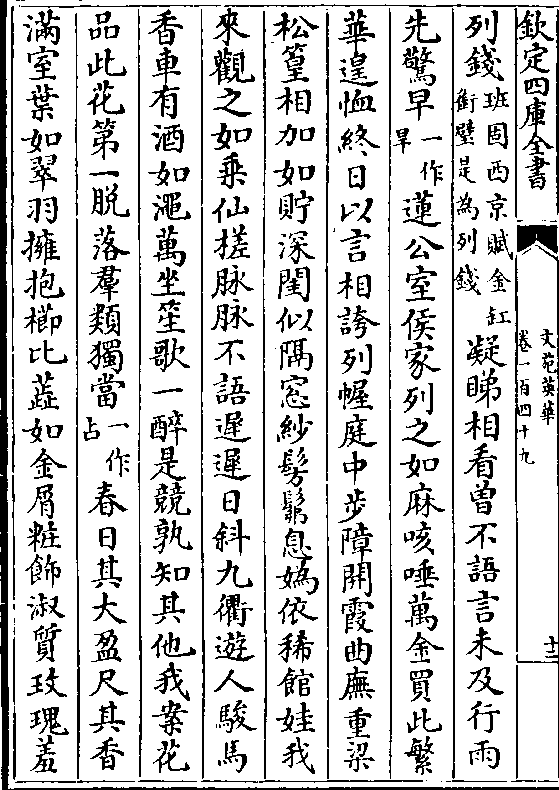 欽定四庫全書
文苑英華
卷一百四十九
列錢班固西京賦金缸銜璧是為列錢凝睇相看曾不語言未及行雨
先驚早一作旱蓮公室侯家列之如麻咳唾萬金買此繁
華遑恤終日以言相誇列幄庭中步障開霞曲廡重梁
松篁相加如貯深閨似隔窓紗髣髴息媯依稀館娃我
來觀之如乗仙槎脉脉不語遲遲日斜九衢遊人駿馬
香車有酒如澠萬坐笙歌一醉是競孰知其他我案花
品此花第一脱落羣類獨當一作占春日其大盈尺其香
滿室葉如翠羽擁抱櫛比蕋如金屑粧飾淑質玫瑰羞